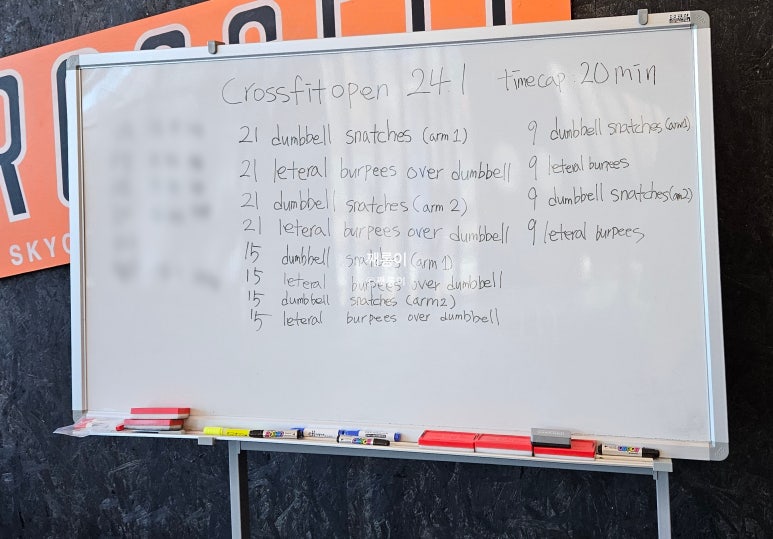 CROSSFIT
SKYC
Crossfit open 24.1 timecap: 20min
21 dumbbell snatches (arm 1)
21 leteral burpees over dumbbell
21 dumbbell snatches (arm 2)
21 leteral burpees over dumbbell
15 dumbbell snatches (arm 1)
15 leteral burpees over dumbbell
15 dumbbell snatches (arm2)
15 leteral burpees over dumbbell
9 dumbbell snatches (arm1)
9 leteral burpees
9 dumbbell snatches (arm2)
9 leteral burpees